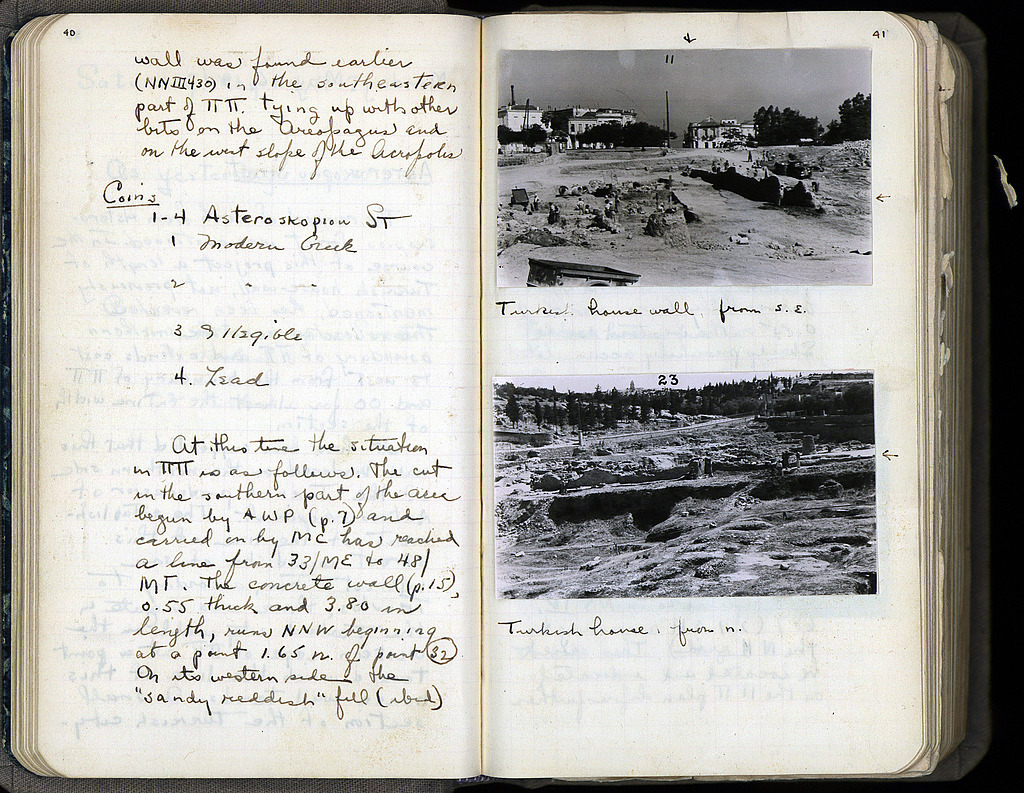 40
wall was found earlier
(NN III 430) in the southeastern
part of ΠΠ tying up with other
bits on the Areopagus and
on the west slope of the Acropolis
Coins
1-4 Asteroskopion St
1 Modern Greek
2 " "
3 Illegible
4. Lead
At this time the situation
in ΠΠ is as follows. The cut
in the southern part of the area
begun by AWP (p.7) and
carried on by MC has reached
a line from 33/ME to 48/
MT. The concrete wall (p.15),
0.55 thick and 3.80 in
length, runs NNW beginning
at a point 1.65 n. of point 32
On its western side the
"sandy reddish" fill (ibid)
41
11
←
Turkish house wall, from s.e.
23
←
Turkish house, from n.